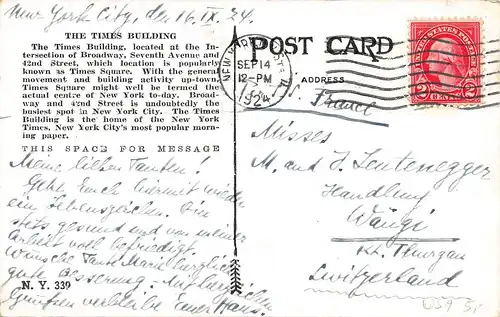 New York City, den 16. IX. 24.
THE TIMES BUILDING
The Times Building, located at the In-
tersection of Broadway, Seventh Avenue and
42nd Street, which location is popularly
known as Times Square. With the general
movement and building activity up-town,
Times Square might well be termed the
actual centre of New York to-day. Broad-
way and 42nd Street is undoubtedly the
busiest spot in New York City. The Times
Building is the home of the New York
Times, New York City's most popular morn-
ing paper.
THIS SPACE FOR MESSAGE
Meine lieben Tanten!
Gebe Euch hiermit wieder
ein Lebenszeichen. Bin
stets gesund und von meiner
Arbeit voll befriedigt.
Wünsche Tante Marie herzlich
gute Besserung. Mit herzlichen
Grüssen verbleibe Euer Hans.
N. Y. 339
POST CARD
ADDRESS
NEW YORK
SEP 14
12-PM
1924
2 CENTS 2
Misses
M. and J. Leutenegger
Handlung
Wängi
Kt. Thurgau
Switzerland
USA